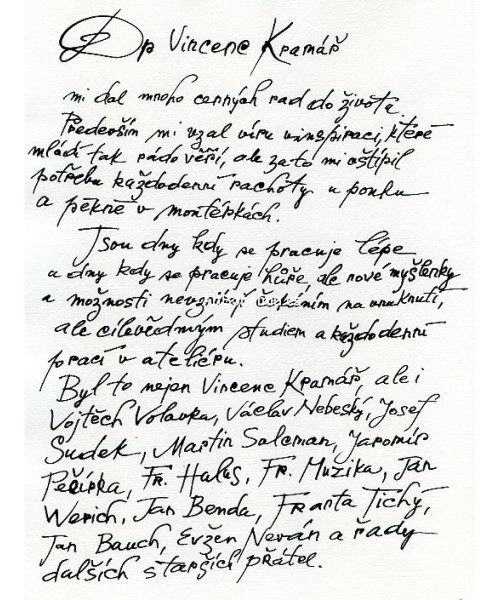 Dr Vincenc Kramář
mi dal mnoho cenných rad do života.
Především mi vzal víru v inspiraci, které
mládí tak rádo věří, ale zato mi oštípil
potřebu každodenní rachoty u ponku
a pěkně v montérkách.
Jsou dny kdy se pracuje lépe
a dny kdy se pracuje hůře, ale nové myšlenky
a možnosti nevznikají čekáním na vnuknutí,
ale cílevědomým studiem a každodenní
prací v ateliéru.
Byl to nejen Vincenc Kramář, ale i
Vojtěch Volavka, Václav Nebeský, Josef
Sudek, Martin Salcman, Jaromír
Pečírka, Fr. Halas, Fr. Muzika, Jan
Werich, Jan Benda, Franta Tichý,
Jan Bauch, Evžen Neván a řady
dalších starších přátel.